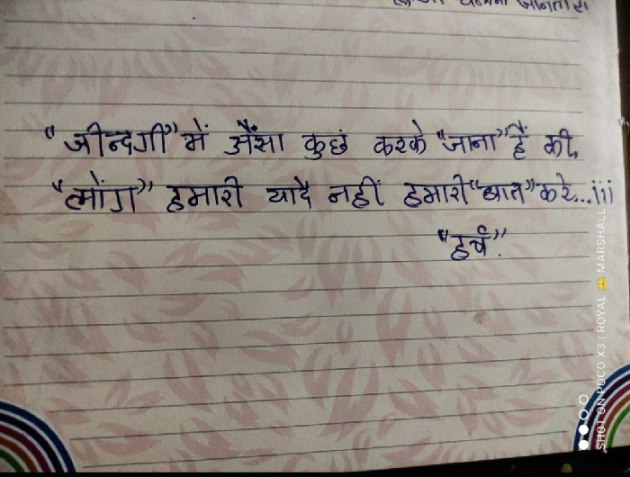 "जीन्दगी" में अैंसा कुछं करके "जाना" हैं की,
"लोंग" हमारी यादे नहीं हमारी "बात" करे...iii
"हर्ष".
SHOT ON POCO X3 | ROYAL MARSHALL